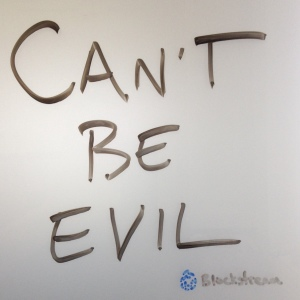 CAN'T
BE
EVIL
Blockstream